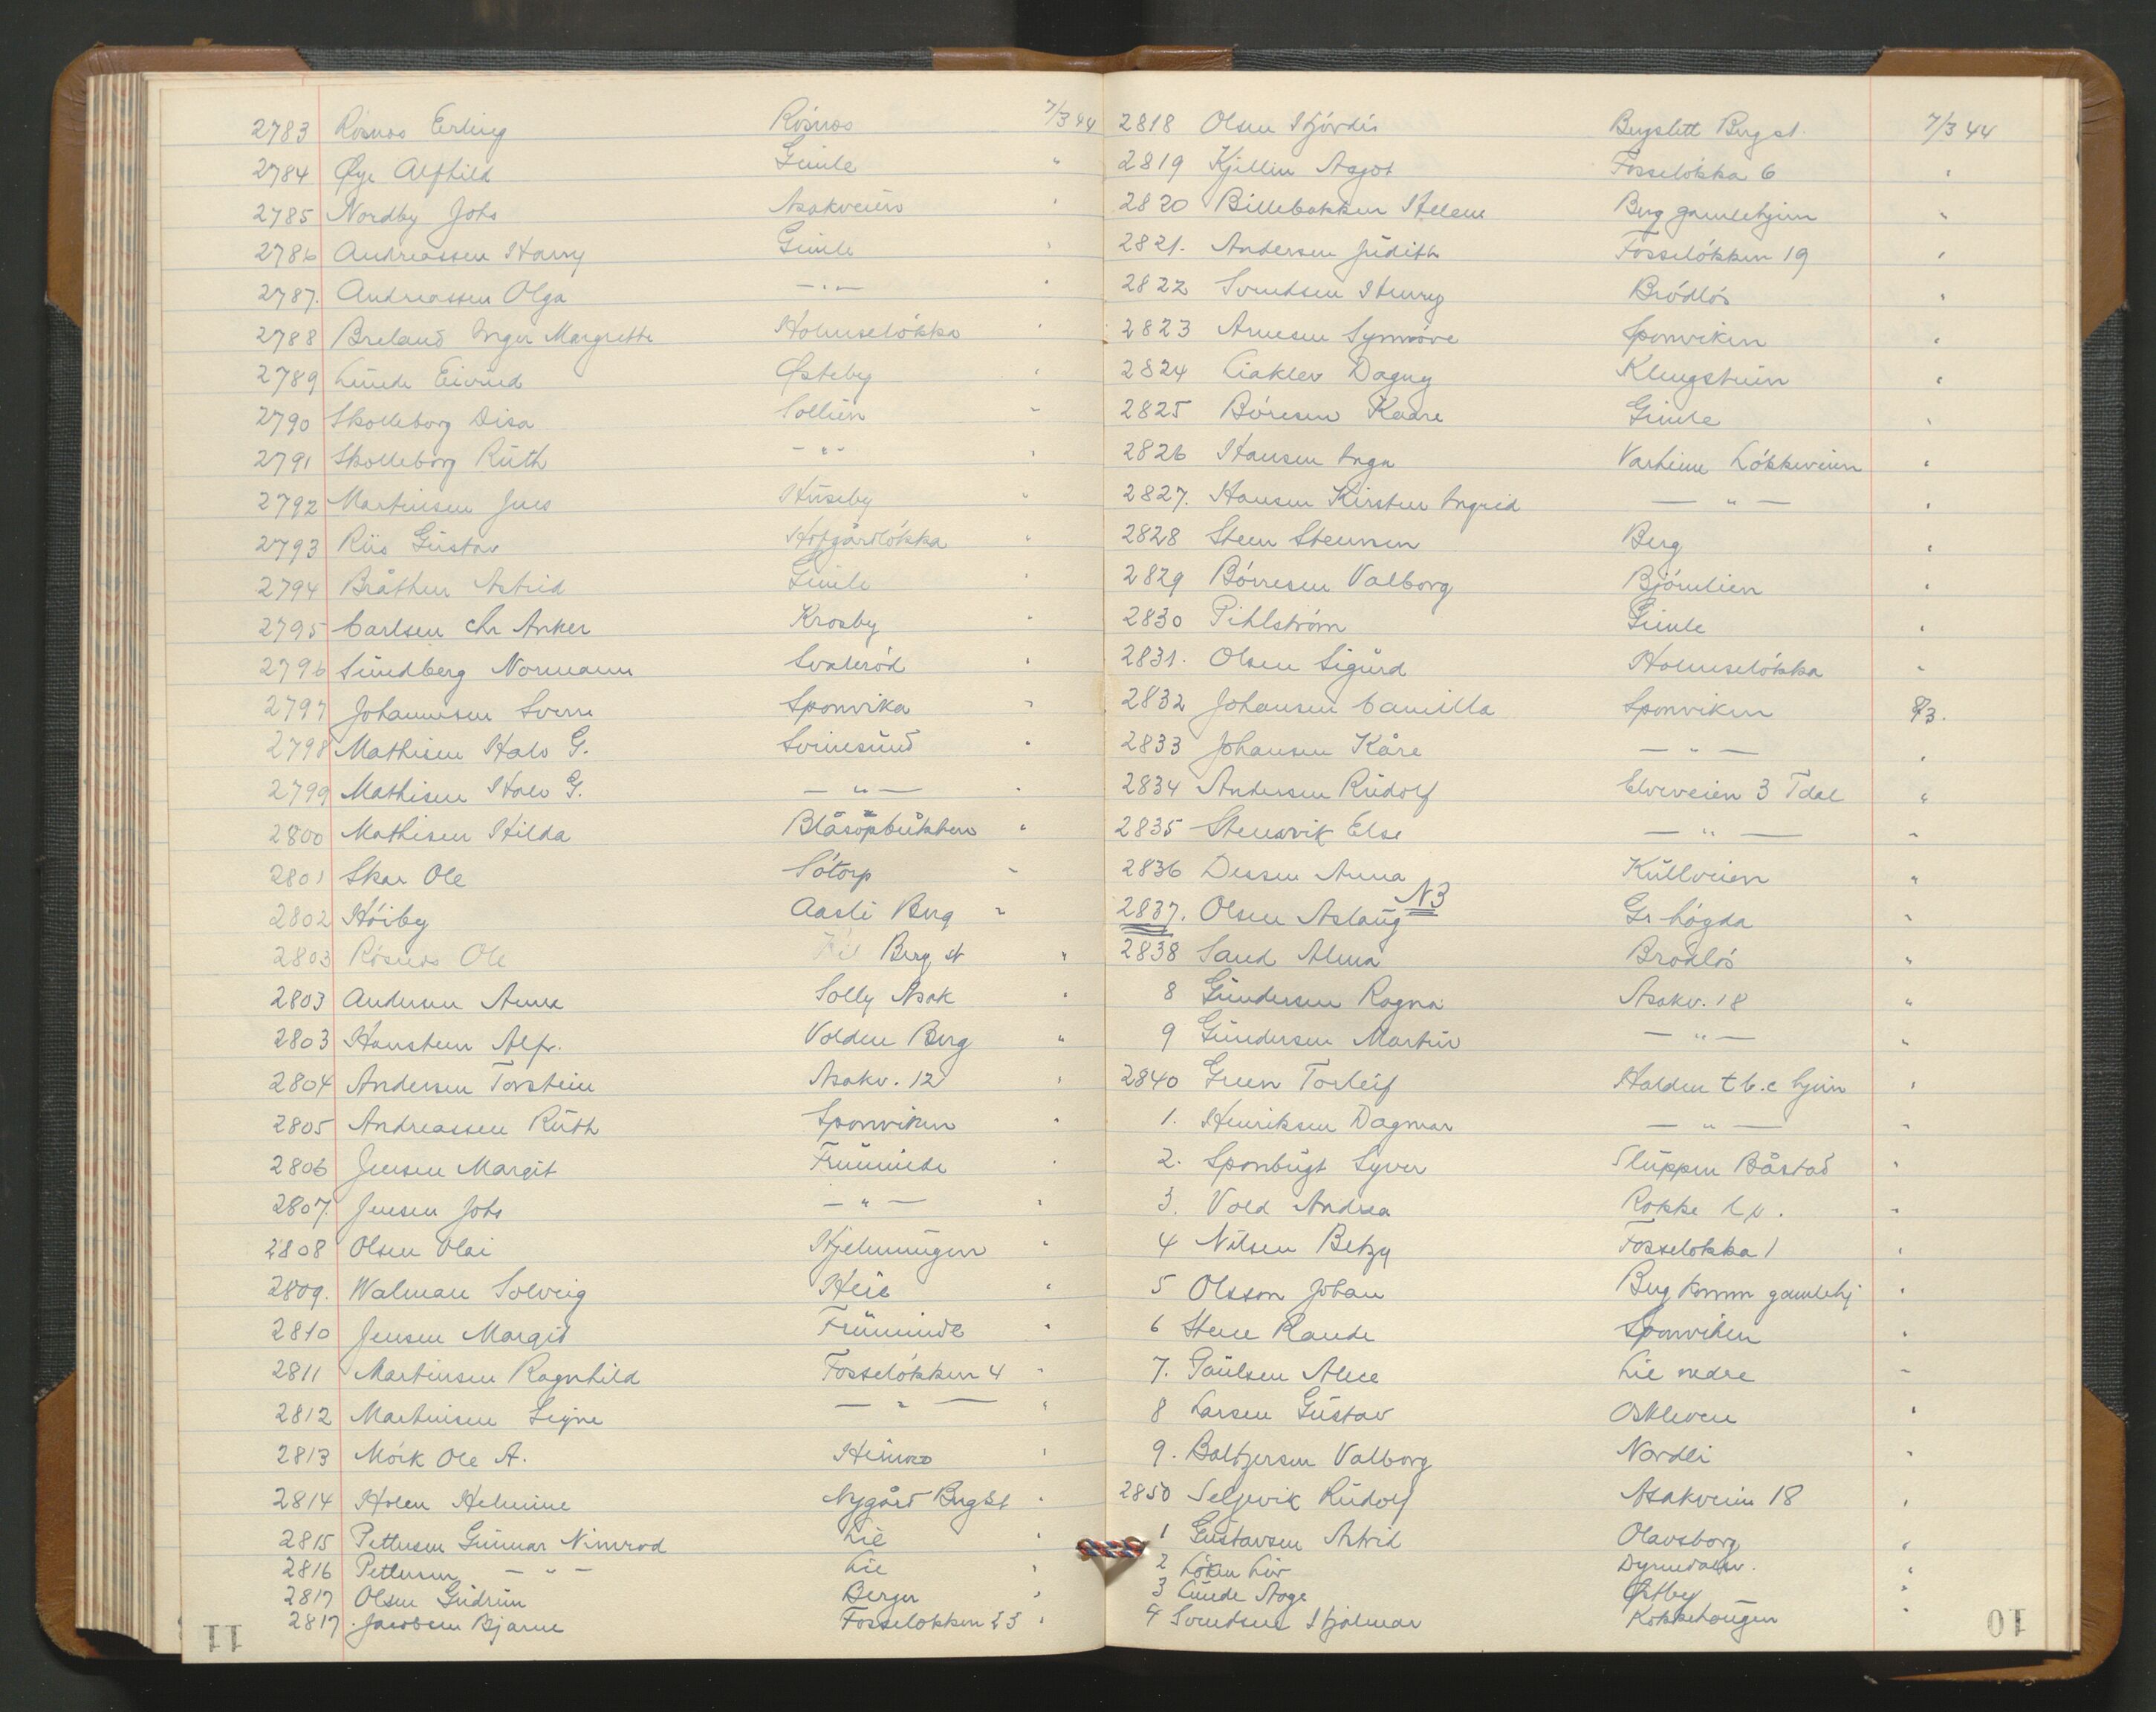 2783 Rösnæs Erling Rösnæs 7/3 44
2784 Øye Alfhild Gimle "
2785 Nordby Johs Asakveien "
2786 Andreassen Harry Gimle "
2787. Andreassen Olga — " — "
2788 Breland Inger Margrethe Holmseløkka "
2789 Lunde Eivind Østeby "
2790 Skolleborg Disa Sollien "
2791 Skolleborg Ruth — " — "
2792 Martinsen Jens Huseby "
2793 Riis Gustav Hofgårdløkka "
2794 Bråthen Astrid Gimle "
2795 Carlsen Chr Anker Krosby "
2796 Sundberg Normann Svalerød "
2797 Johannesen Sverre Sponvika "
2798 Mathisen Halv G. Svinesund "
2799 Mathisen Halv G. — " — "
2800 Mathisen Hilda Blåsopbukken "
2801 Skar Ole Søtorp "
2802 Høiby Aasli Berg "
2803 Rösnæs Ole Berg st "
2803 Andersen Anna Solly Asak "
2803 Hansteen Alfr. Volden Berg "
2804 Andersen Torstein Asakv. 12 "
2805 Andreassen Ruth Sponviken "
2806 Jensen Margit Fruminde "
2807. Jensen Johs — " — "
2808 Olsen Olai Hjelmungen "
2809. Walman Solveig Heie "
2810 Jensen Margit Fruminde "
2811 Martinsen Ragnhild Fosseløkken 4 "
2812 Martinsen Signe — " — "
2813 Mörk Ole A. Heimro "
2814 Holen Helmine Nygård Bergst "
2815 Pettersen Gunnar Nimrod Lie "
2816 Pettersen — " — Lie "
2817 Olsen Gudrun Berger "
2817. Jacobsen Bjarne Fosseløkken 23 "
11
2818 Olsen Hjördis Bergslett Bergst. 7/3 44
2819 Kjellin Asgot Fosseløkka 6 "
2820 Billebakken Helene Berg gamlehjem "
2821. Andersen Judith Fosseløkken 19 "
2822 Svendsen Henry Brødløs "
2823 Arnesen Synnøve Sponviken "
2824 Liaklev Dagny Klengsteien "
2825 Børresen Kaare Gimle "
2826 Hansen Inga Varheim Løkkeveien "
2827. Hansen Kirsten Ingrid — " — "
2828 Steen Stennsen Berg "
2829 Børresen Valborg Bjørnlien "
2830 Pihlstrøm Gimle "
2831. Olsen Sigurd Holmseløkka "
2832 Johansen Camilla Sponviken 8/3.
2833 Johansen Kåre — " — "
2834 Andersen Rudolf Elveveien 3 Tdal "
2835 Stensvik Else — " — "
2836 Dessen Anna Kullveien "
2837. Olsen Aslaug N3 Gr høgda "
2838 Sand Alma Brødløs "
8 Gundersen Ragna Asakv. 18 "
9 Gundersen Martin — " — "
2840 Green Torleif Halden t b.c hjem "
1. Henriksen Dagmar — " — "
2. Sponbugt Syver Sluppen Båstad "
3. Vold Andrea Rokke "
4 Nilsen Betzy Fosseløkka 1 "
5 Olsson Johan Berg komm gamlehj "
6 Stene Rande Sponviken "
7. Paulsen Alice Lie nedre "
8 Larsen Gustav Oskleven "
9. Baltzersen Valborg Nordli "
2850 Seljevik Rudolf Asakveien 18 "
1 Gustavsen Astrid Olavsborg "
2 Løken Liv Dyrendalsv. "
3 Lunde Aage Østby "
4 Svendsen Hjalmar Kokkehaugen "
10